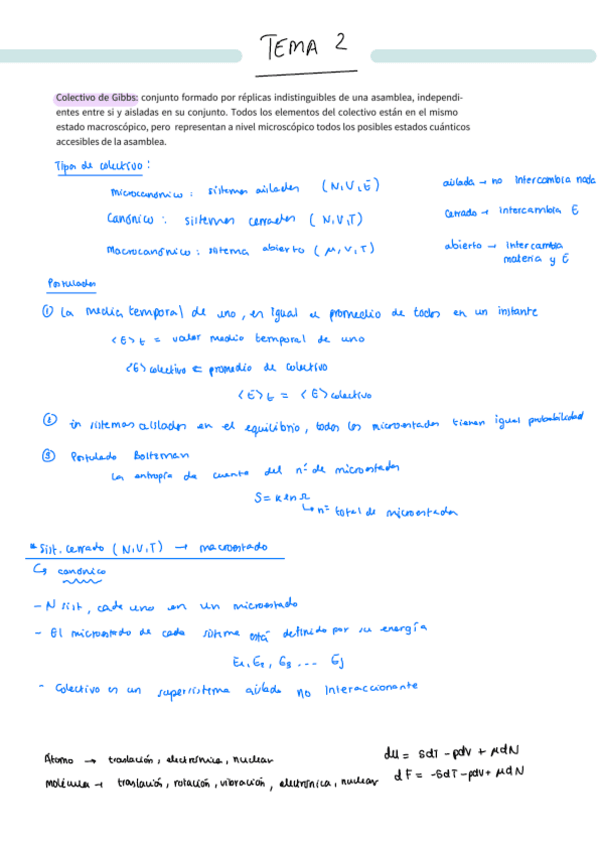 TEMA 2
Colectivo de Gibbs: conjunto formado por réplicas indistinguibles de una asamblea, independi-
entes entre si y aisladas en su conjunto. Todos los elementos del colectivo están en el mismo
estado macroscópico, pero representan a nivel microscópico todos los posibles estados cuánticos
accesibles de la asamblea.
Tipos de colectivo:
microcanónico: sistemas aislados (N,V,E) aislada → no intercambia nada
Canónico: sistemas cerrados (N,V,T) Cerrado → Intercambia E
Macrocanónico: sistema abierto (μ,V,T) abierto → Intercambia
materia y E
Postulados
① La media temporal de uno, en igual al promedio de todos en un instante
<E>t = valor medio temporal de uno
<E>colectivo = promedio de colectivo
<E>t = <E>colectivo
② in sistemas aislados en el equilibrio, todos los microestados tienen igual probabilidad
③ Postulado Boltzman
La entropía da cuenta del nº de microestados
S = K ln Ω
↳ nº total de microestados
* Sist. cerrado (N,V,T) → macroestado
↳ canónico
- N sist, cada uno en un microestado
- El microestado de cada sistema está definido por su energía
E1, E2, E3 ... Ej
- Colectivo es un supersistema aislado no Interaccionante
Átomo → traslación, electrónica, nuclear dU = SdT - pdV + μdN
molécula → traslación, rotación, vibración, electrónica, nuclear dF = -SdT - pdV + μdN